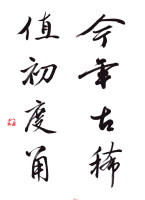 今年古稀
值初度蒲